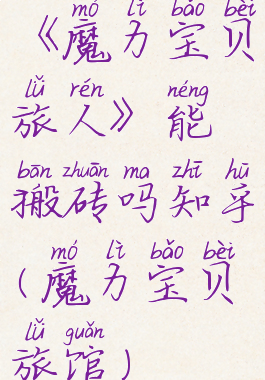 mó lì bǎo bèi
《魔力宝贝
lǚ rén néng
旅人》能
bān zhuān ma zhī hū
搬砖吗知乎
mó lì bǎo bèi
(魔力宝贝
lǚ guǎn
旅馆)